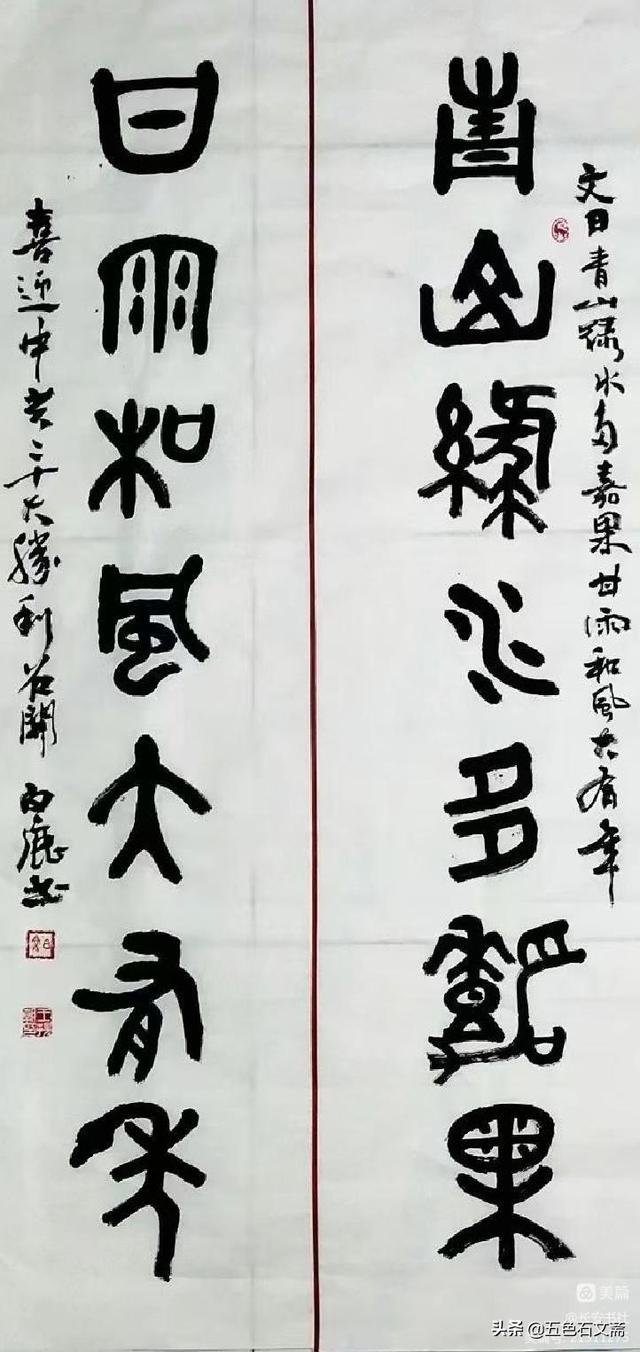 文曰青山綠水多嘉果甘雨和風大有年
青山綠水多嘉果
甘雨和風大有年
喜迎中共二十大勝利召開 白鹿書
美篇
@长安书社
头条 @五色石文斋